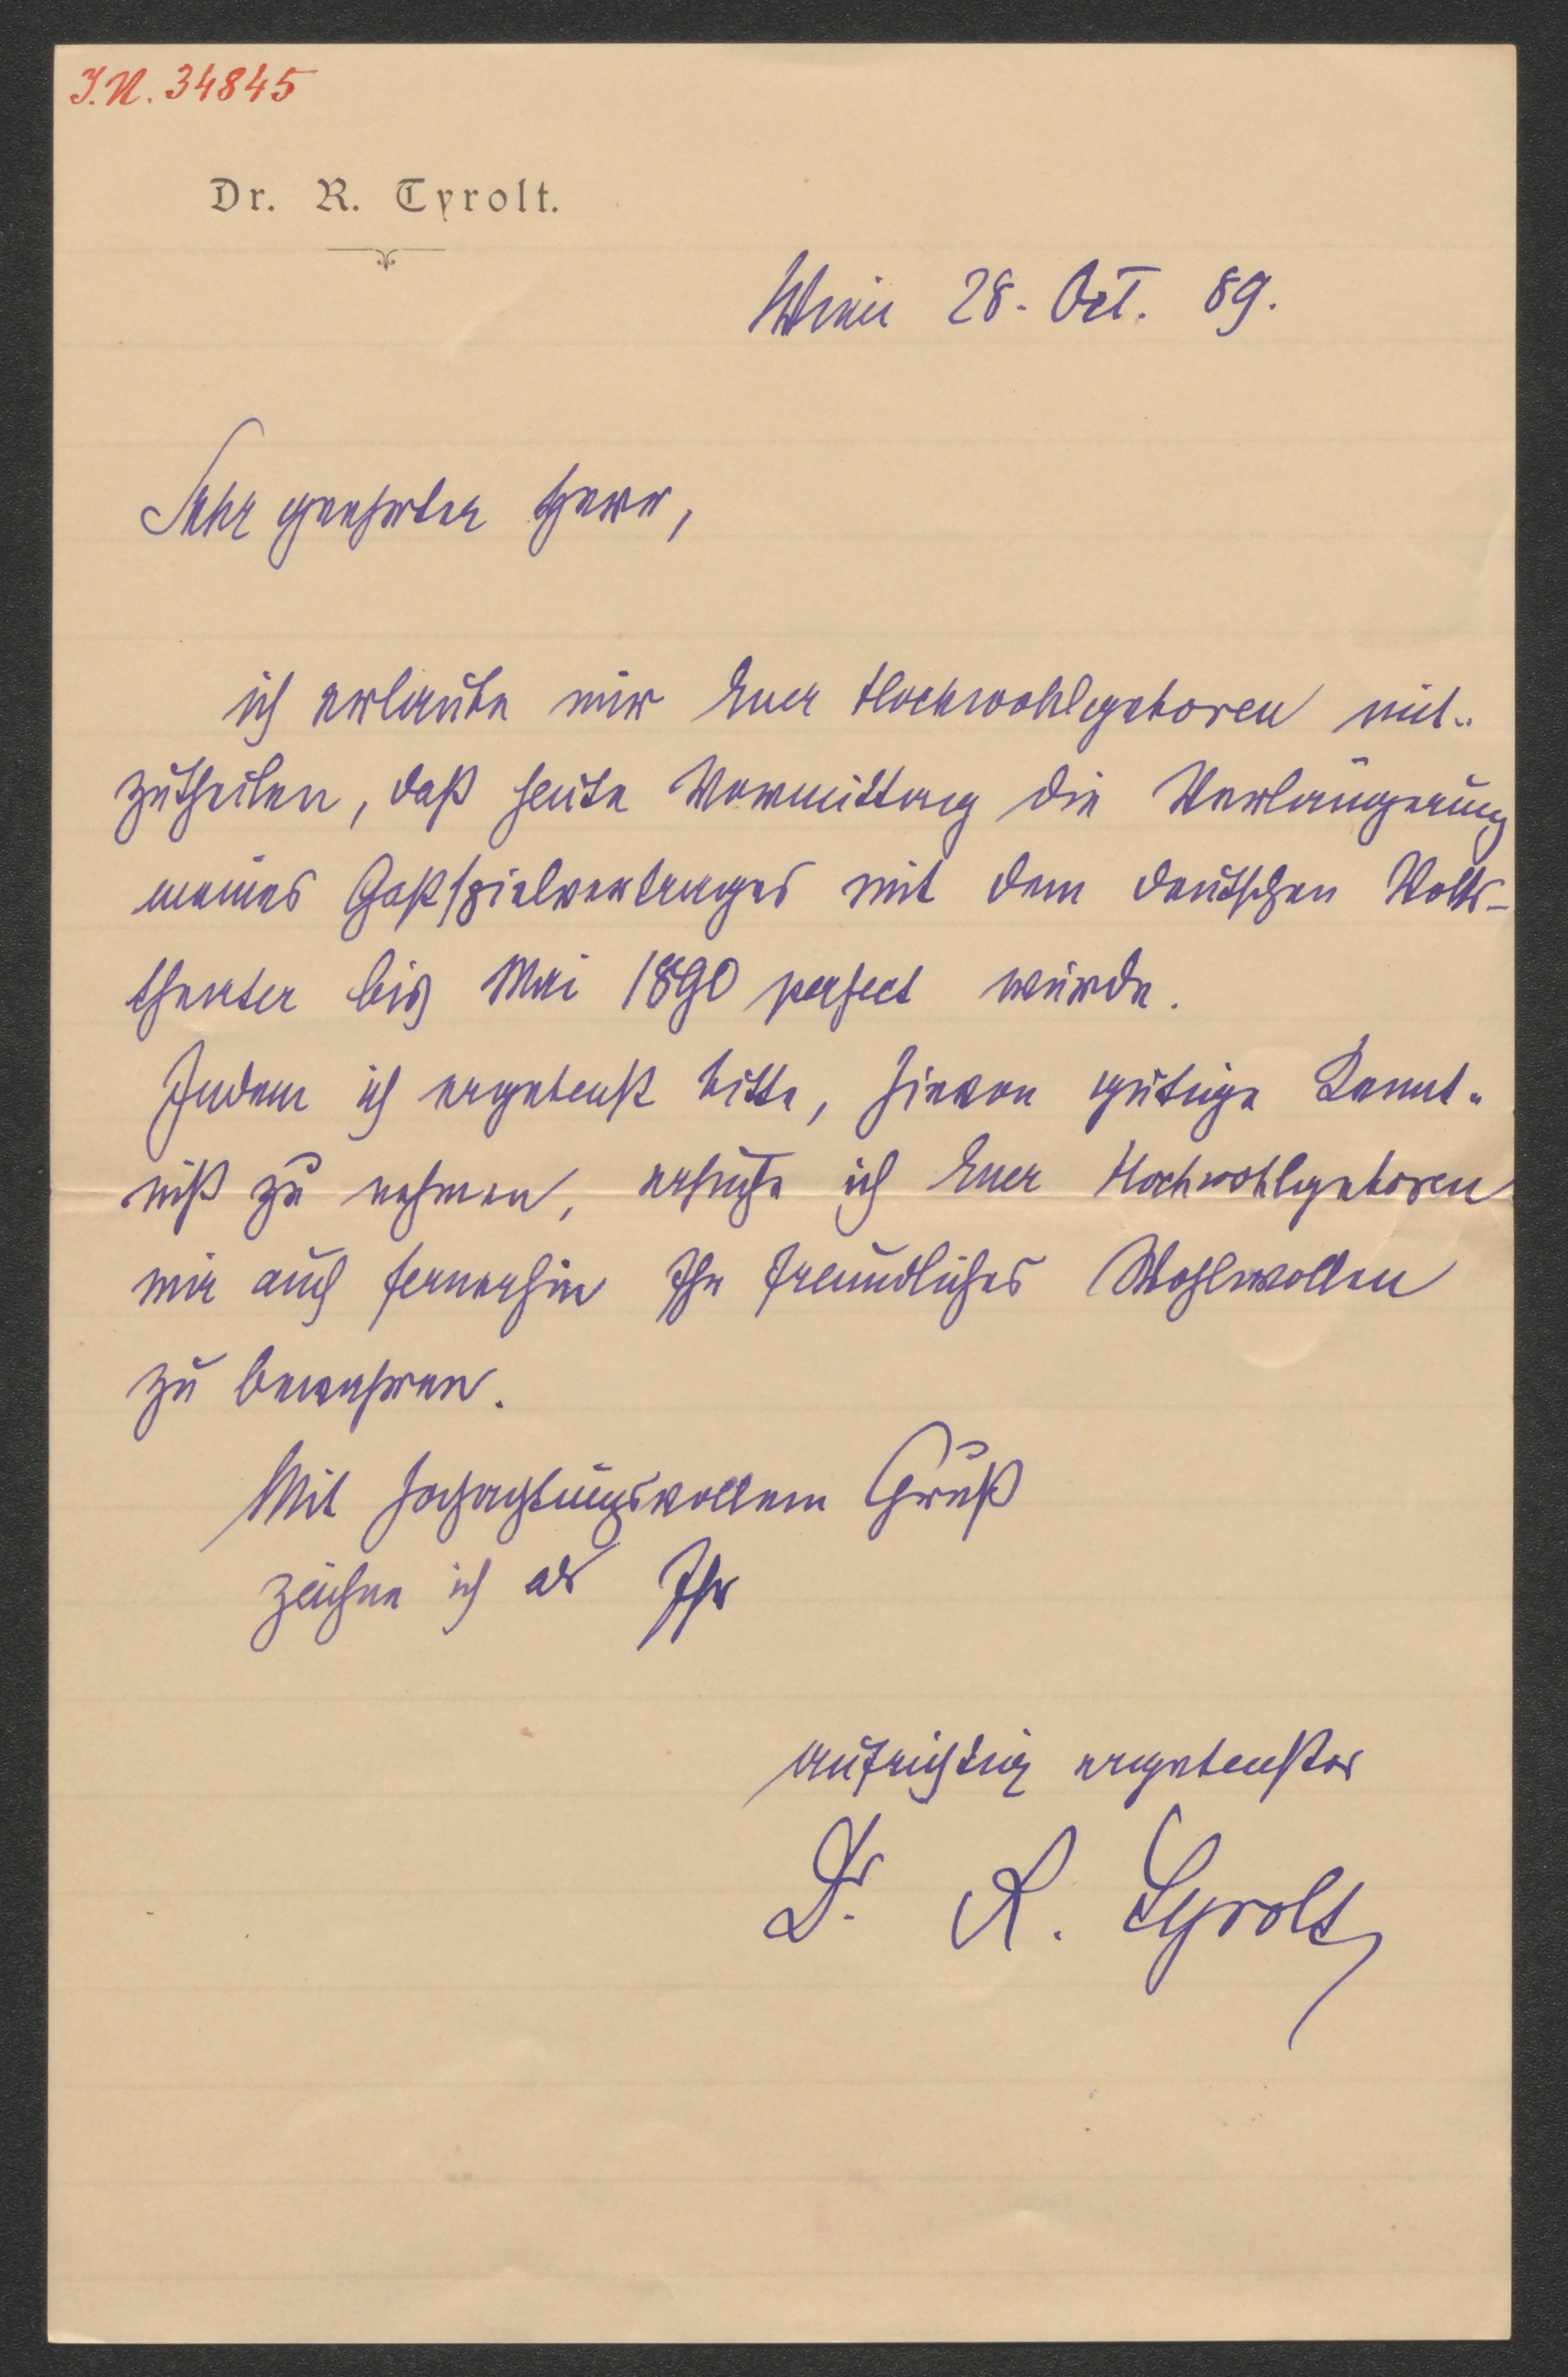 I.N. 34845
Dr. R. Tyrolt.
Wien 28. Oct. 89.
Sehr geehrter Herr,
ich erlaube mir Euer Hochwohlgeboren mit-
zutheilen, daß heute Vormittag die Verlängerung
meines Gastspielvertrages mit dem deutschen Volks-
theater bis Mai 1890 perfect wurde.
Indem ich ergebenst bitte, hievon gütige Kennt-
niß zu nehmen, ersuche ich Euer Hochwohlgeboren
mir auch fernerhin Ihr freundliches Wohlwollen
zu bewahren.
Mit hochachtungsvollem Gruß
zeichne ich als Ihr
aufrichtig ergebenster
Dr. R. Tyrolt